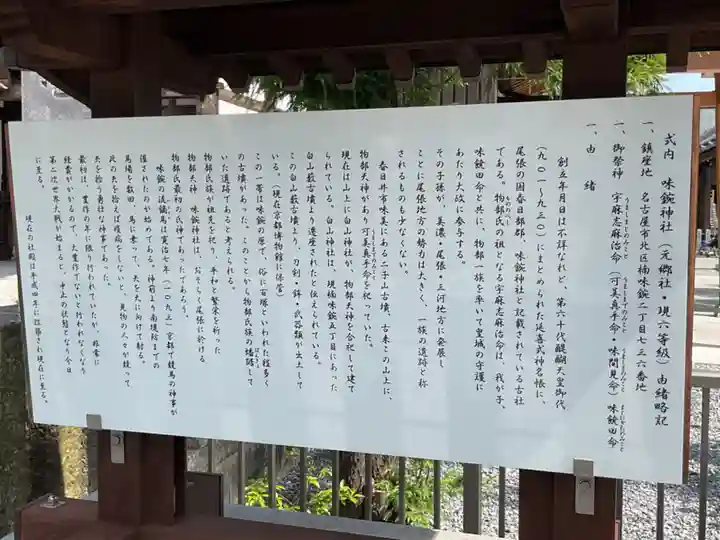 式内 味鋺神社(元郷社・現六等級)由緒略記
一、鎮座地 名古屋市北区楠味鋺二丁目七三六番地
一、御祭神 宇麻志麻治命(可美真手命・味間見命)味饒田命
一、由 緒
創立年月日は不詳なれど、第六十代醍醐天皇御代
(九〇一〜九三〇)にまとめられた延喜式神名帳に、
尾張の国春日部郡、味鋺神社と記載されている古社
である。物部氏の祖となる宇麻志麻治命は、我が子、
味饒田命と共に、物部一族を率いて皇城の守護に
あたり大政に参与する。
その子孫が、美濃・尾張・三河地方に発展し
ことに尾張地方の勢力は大きく、一族の遺跡と称
されるものも少なくない。
春日井市味美にある二子山古墳、古来この山上に、
物部天神があり可美真手命を祝っていた。
現在は山上に白山神社が、物部天神を合祀して建て
られている。白山神社は、現楠味鋺五丁目にあった
白山薮古墳より遷座されたと伝えられている。
この白山薮古墳より、刀剣・鉾・武器類が出土して
いる。(現在京都博物館に保管)
この一帯は味鋺の原で、俗に百塚といわれた程多く
の古墳があった。このことから物部氏族の蟠踞して
いた遺跡であると考えられる。
物部天神、味鋺神社は、おそらく尾張に於ける
物部氏族が祖先を祀り、平和と繁栄を祈った
物部氏最初の氏神であったであろう。
味鋺の流鏑馬は寛治七年(一〇九三)京都で競馬の神事が
催されたのが始めである。神前より南堤防までの
馬場を数回、馬に乗って、矢を天に向けて射る。
此の矢を拾えば疫病をしないと、見物の人々が競って
矢を拾う勇壮な神事であった。
最初は、豊作の年に限り行われていたが、非常に
経費がかかるので、大豊作でないと行われなくなり
第二次世界大戦が始まると、中止の状態となり今日
に至る。
現在の社殿は平成四年に改築され現在に至る。